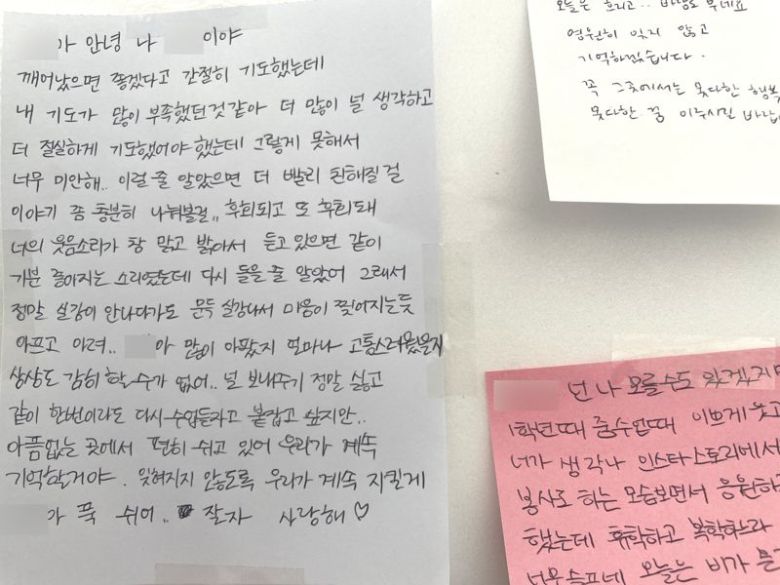 가 안녕 나 이야
깨어났으면 좋겠다고 간절히 기도했는데
내 기도가 많이 부족했던것 같아 더 많이 널 생각하고
더 절실하게 기도했어야 했는데 그렇게 못해서
너무 미안해.. 이럴 줄 알았으면 더 빨리 친해질 걸
이야기 좀 충분히 나눠볼걸.. 후회되고 또 후회돼
너의 웃음소리가 참 맑고 밝아서 듣고 있으면 같이
기분 좋아지는 소리였는데 다시 들을 줄 알았어 그래서
정말 실감이 안나다가도 문득 실감나서 마음이 찢어지는듯
아프고 아려.. 아 많이 아팠지 얼마나 고통스러웠을지
상상도 감히 할 수가 없어.. 널 보내주기 정말 싫고
같이 한번이라도 다시 수업듣자고 붙잡고 싶지만..
아픔없는 곳에서 편히 쉬고 있어 우리가 계속
기억할거야. 잊혀지지 않도록 우리가 계속 지킬게
가 푹 쉬어.. 잘자 사랑해 ♡
오늘은 흐리고.. 바람도 부네요
영원히 잊지 않고
기억하겠습니다.
꼭 그곳에서는 못다한 행복
못다한 꿈 이루시길 바랍
넌 나 모를수도 있겠지만
1학년때 중수업때 이쁘게 웃고
너가 생각나 인스타스토리에서
봉사도 하는 모습보면서 응원하
했는데 휴학하고 복학하느라
너무슬프네 오늘은 비가